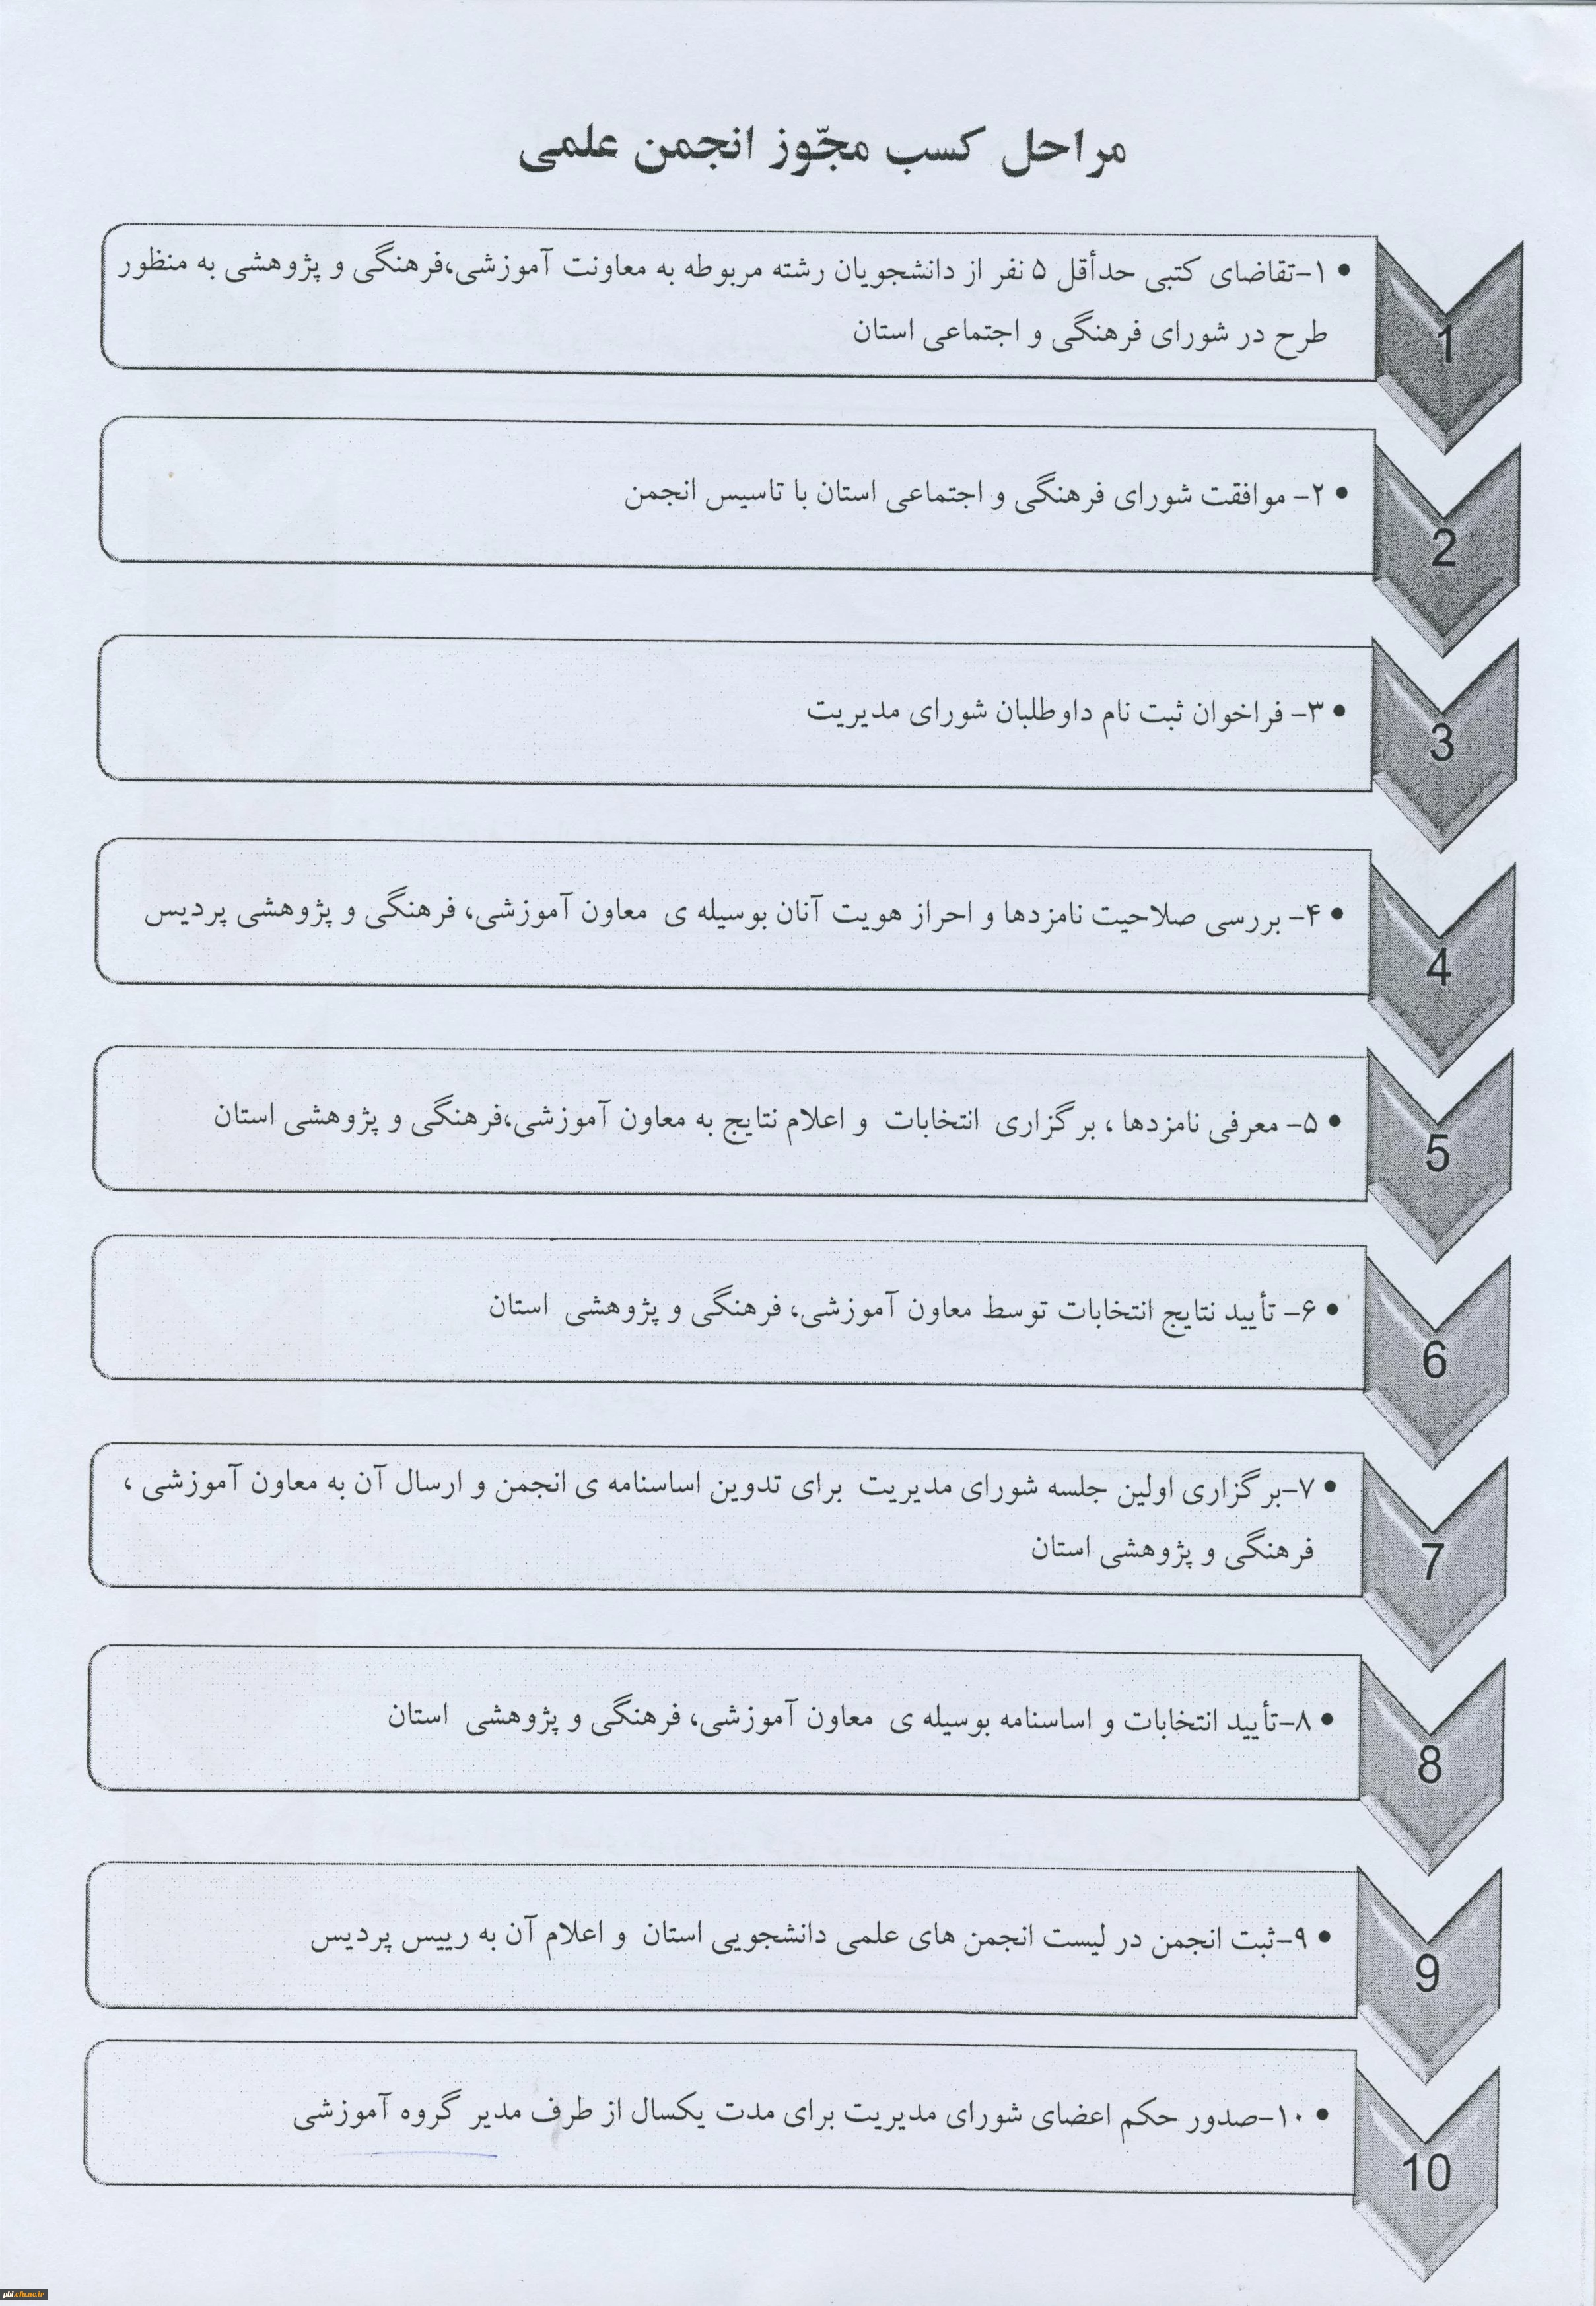 مراحل کسب مجّوز انجمن علمی
• ۱-تقاضای کتبی حدأقل ۵ نفر از دانشجویان رشته مربوطه به معاونت آموزشی،فرهنگی و پژوهشی به منظور
طرح در شورای فرهنگی و اجتماعی استان
1
• ۲- موافقت شورای فرهنگی و اجتماعی استان با تاسیس انجمن
2
• ۳- فراخوان ثبت نام داوطلبان شورای مدیریت
3
• ۴- بررسی صلاحیت نامزدها و احراز هویت آنان بوسیله ی معاون آموزشی، فرهنگی و پژوهشی پردیس
4
• ۵- معرفی نامزدها ، برگزاری انتخابات و اعلام نتایج به معاون آموزشی،فرهنگی و پژوهشی استان
5
• ۶- تأیید نتایج انتخابات توسط معاون آموزشی، فرهنگی و پژوهشی استان
6
• ۷-برگزاری اولین جلسه شورای مدیریت برای تدوین اساسنامه ی انجمن و ارسال آن به معاون آموزشی ،
فرهنگی و پژوهشی استان
7
• ۸-تأیید انتخابات و اساسنامه بوسیله ی معاون آموزشی، فرهنگی و پژوهشی استان
8
• ۹-ثبت انجمن در لیست انجمن های علمی دانشجویی استان و اعلام آن به رییس پردیس
9
• ۱۰-صدور حکم اعضای شورای مدیریت برای مدت یکسال از طرف مدیر گروه آموزشی
10
pbl.cfu.ac.ir